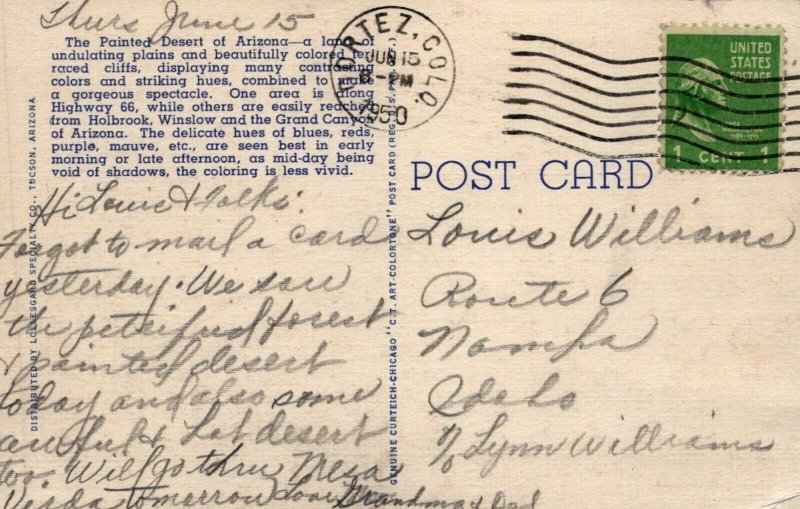 Thurs June 15
The Painted Desert of Arizona—a land of
undulating plains and beautifully colored ter-
raced cliffs, displaying many contrasting
colors and striking hues, combined to make
a gorgeous spectacle. One area is along
Highway 66, while others are easily reached
from Holbrook, Winslow and the Grand Canyon
of Arizona. The delicate hues of blues, reds,
purple, mauve, etc., are seen best in early
morning or late afternoon, as mid-day being
void of shadows, the coloring is less vivid.
CORTEZ, COLO.
JUN 15
PM
1950
UNITED
STATES
POSTAGE
WASHINGTON
1 CENT 1
POST CARD
DISTRIBUTED BY LOLLESGARD SPECIALTY CO., TUCSON, ARIZONA
GENUINE CURTEICH-CHICAGO "C.T. ART-COLORTONE" POST CARD (REG. U.S. PAT. OFF.)
Hi Louis & Folks:
Forgot to mail a card
yesterday. We saw
the petrified forest
& painted desert
today and also some
awful hot desert
too. Will go thru Mesa
Verda tomorrow Love Grandma & Dad
Louis Williams
Route 6
Nampa
Idaho
% Lynn Williams